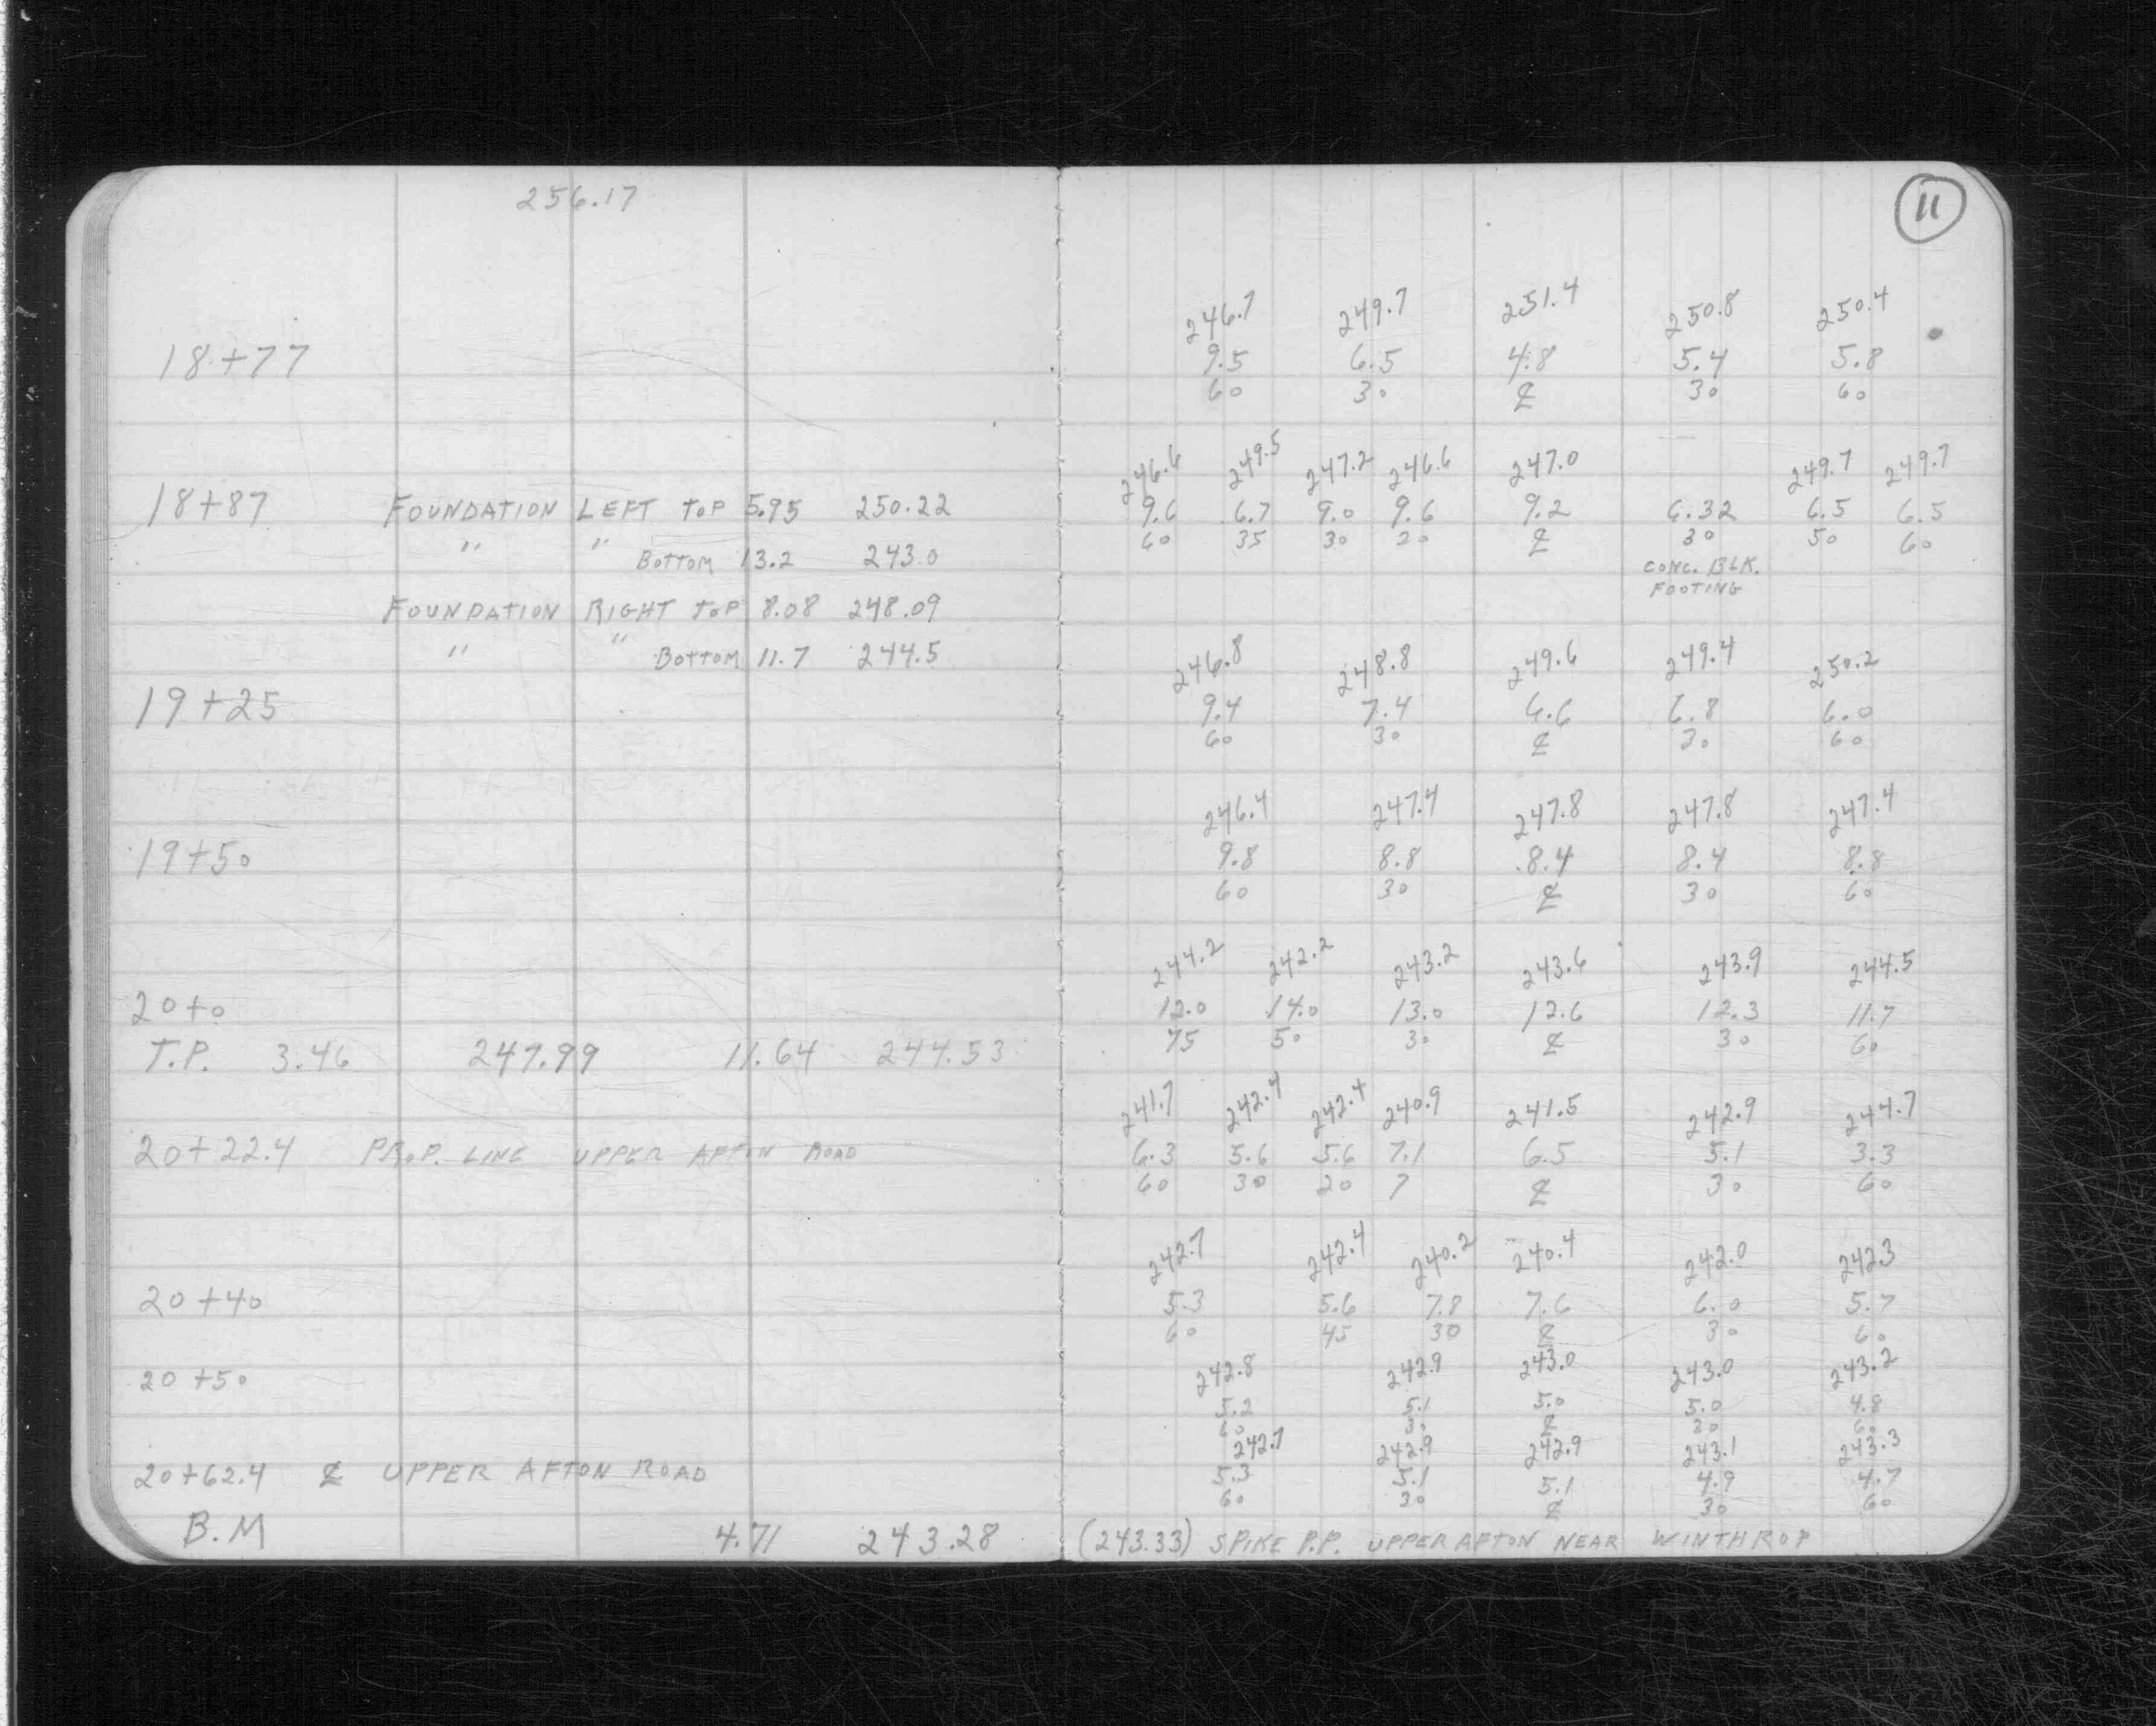 256.17
18+77
18+87 FOUNDATION LEFT TOP 5.95 250.22
" " BOTTOM 13.2 243.0
FOUNDATION RIGHT TOP 8.08 248.09
" " BOTTOM 11.7 244.5
19+25
19+50
20+0
T.P. 3.46 247.99 11.64 244.53
20+22.4 PROP. LINE UPPER AFTON ROAD
20+40
20+50
20+62.4 ℄ UPPER AFTON ROAD
B.M 4.71 243.28
11
246.7 249.7 251.4 250.8 250.4
9.5 6.5 4.8 5.4 5.8
60 30 ℄ 30 60
246.6 249.5 247.2 246.6 247.0 249.7 249.7
9.6 6.7 9.0 9.6 9.2 6.32 6.5 6.5
60 35 30 20 ℄ 30 50 60
CONC. BLK.
FOOTING
246.8 248.8 249.6 249.4 250.2
9.4 7.4 6.6 6.8 6.0
60 30 ℄ 30 60
246.4 247.4 247.8 247.8 247.4
9.8 8.8 8.4 8.4 8.8
60 30 ℄ 30 60
244.2 242.2 243.2 243.6 243.9 244.5
12.0 14.0 13.0 12.6 12.3 11.7
75 50 30 ℄ 30 60
241.7 242.4 242.4 240.9 241.5 242.9 244.7
6.3 5.6 5.6 7.1 6.5 5.1 3.3
60 30 20 7 ℄ 30 60
242.7 242.4 240.2 240.4 242.0 242.3
5.3 5.6 7.8 7.6 6.0 5.7
60 45 30 ℄ 30 60
242.8 242.9 243.0 243.0 243.2
5.2 5.1 5.0 5.0 4.8
60 30 ℄ 30 60
242.7 242.9 242.9 243.1 243.3
5.3 5.1 5.1 4.9 4.7
60 30 ℄ 30 60
(243.33) SPIKE P.P. UPPER AFTON NEAR WINTHROP